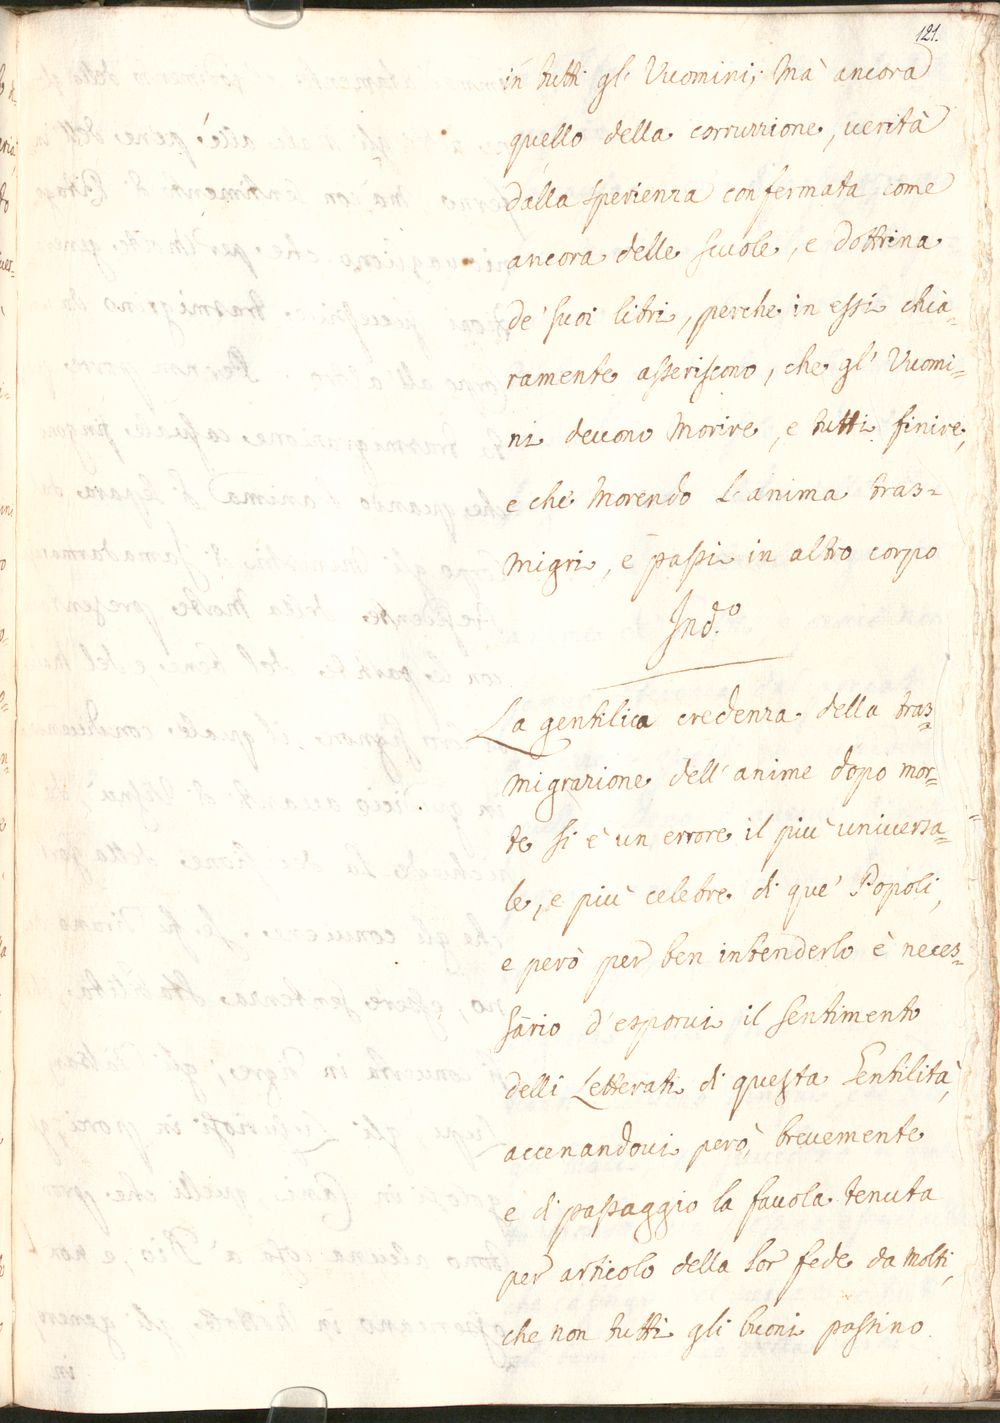 121.
in tutti gl' Vuomini; Mà ancora
quello della corruzzione, uerità
dalla sperienza confermata come
ancora delle scuole, e dottrina
de' suoi libri, perche in essi chia-
ramente asseriscono, che gl' Vuomi-
ni deuono Morire, e tutti finire,
e che Morendo L'anima tras-
migri, e passi in altro corpo
Ind.º
La gentilica credenza della tras-
migrazione dell'anime dopo mor-
te si è un errore il più uniuersa-
le, e più celebre di que' Popoli,
e però per ben intenderlo è neces-
sario d'esporui il sentimento
delli Letterati di questa Gentilità,
accenandoui però, breuemente
e di passaggio la fauola tenuta
per articolo della lor fede da Molti,
che non tutti gli buoni passino